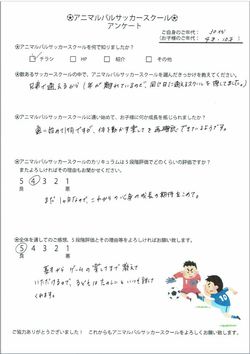 ⚽アニマルパルサッカースクール⚽
アンケート
ご自身のご年代：30代
(お子様のご年代：4才、10才)
●アニマルパルサッカースクールを何で知りましたか？
チラシ □ HP □ 紹介 □ その他
●数あるサッカースクールの中で、アニマルパルサッカースクールを選んだきっかけを教えてください。
兄弟で通えるから
同じ日に通えるスクールを探してました。
●アニマルパルサッカースクールに通い始めて、お子様に何か成長を感じられましたか？
通い始めて
体を動かす楽しさを再確認できているようです。
●アニマルパルサッカースクールのカリキュラムは5段階評価でどのくらいの評価ですか？
またよろしければその理由もお聞かせください。
5 4 3 2 1
良 悪
これからの心身の成長の期待をこめて。
●全体を通してのご感想、5段階評価とその理由等をよろしければお願い致します。
5 4 3 2 1
良 悪
基本からゲームの楽しさまで教えて
いただけるので、子ども
くれます。
ご協力ありがとうございました！ これからもアニマルパルサッカースクールをよろしくお願い致します。